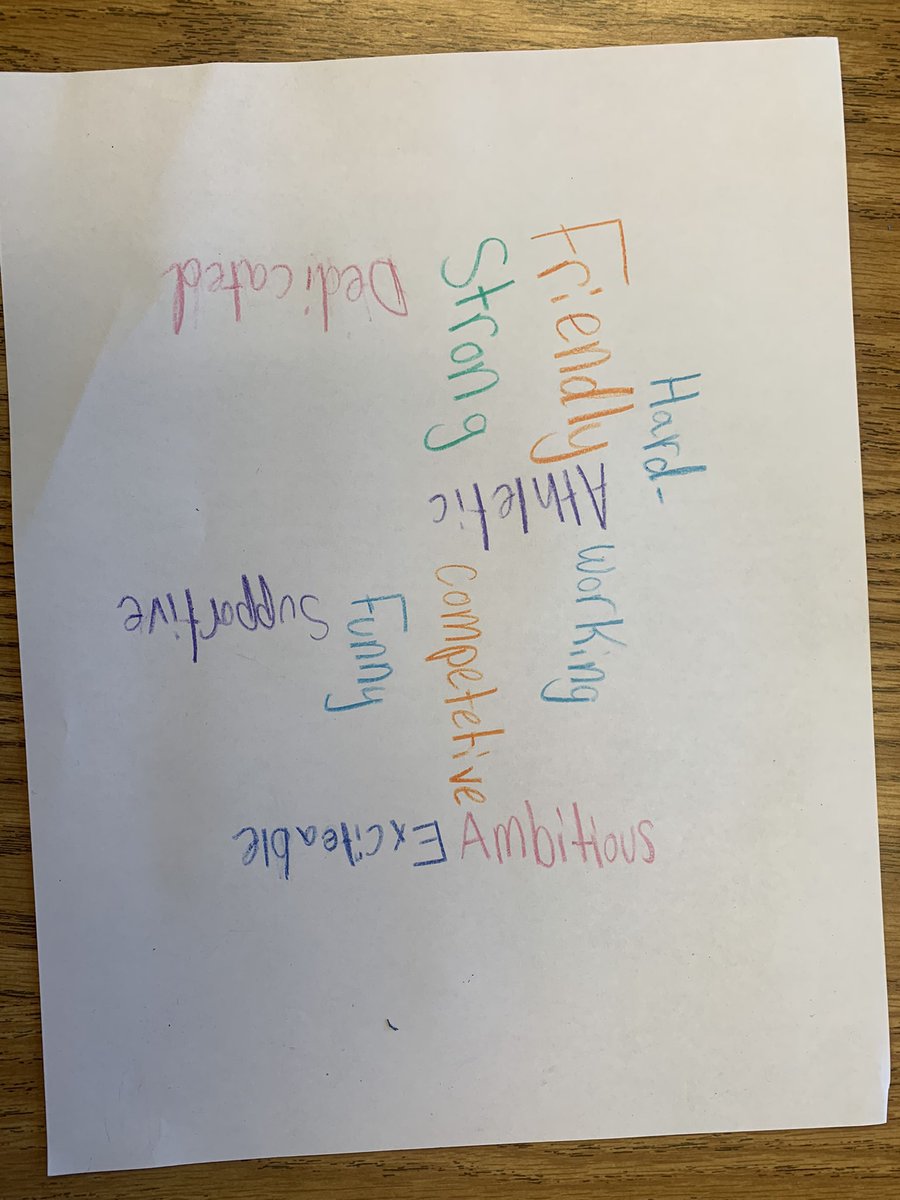 Hard-
working
Friendly
Athletic
Strong
competetive
Ambitious
Dedicated
Funny
Exciteable
Supportive